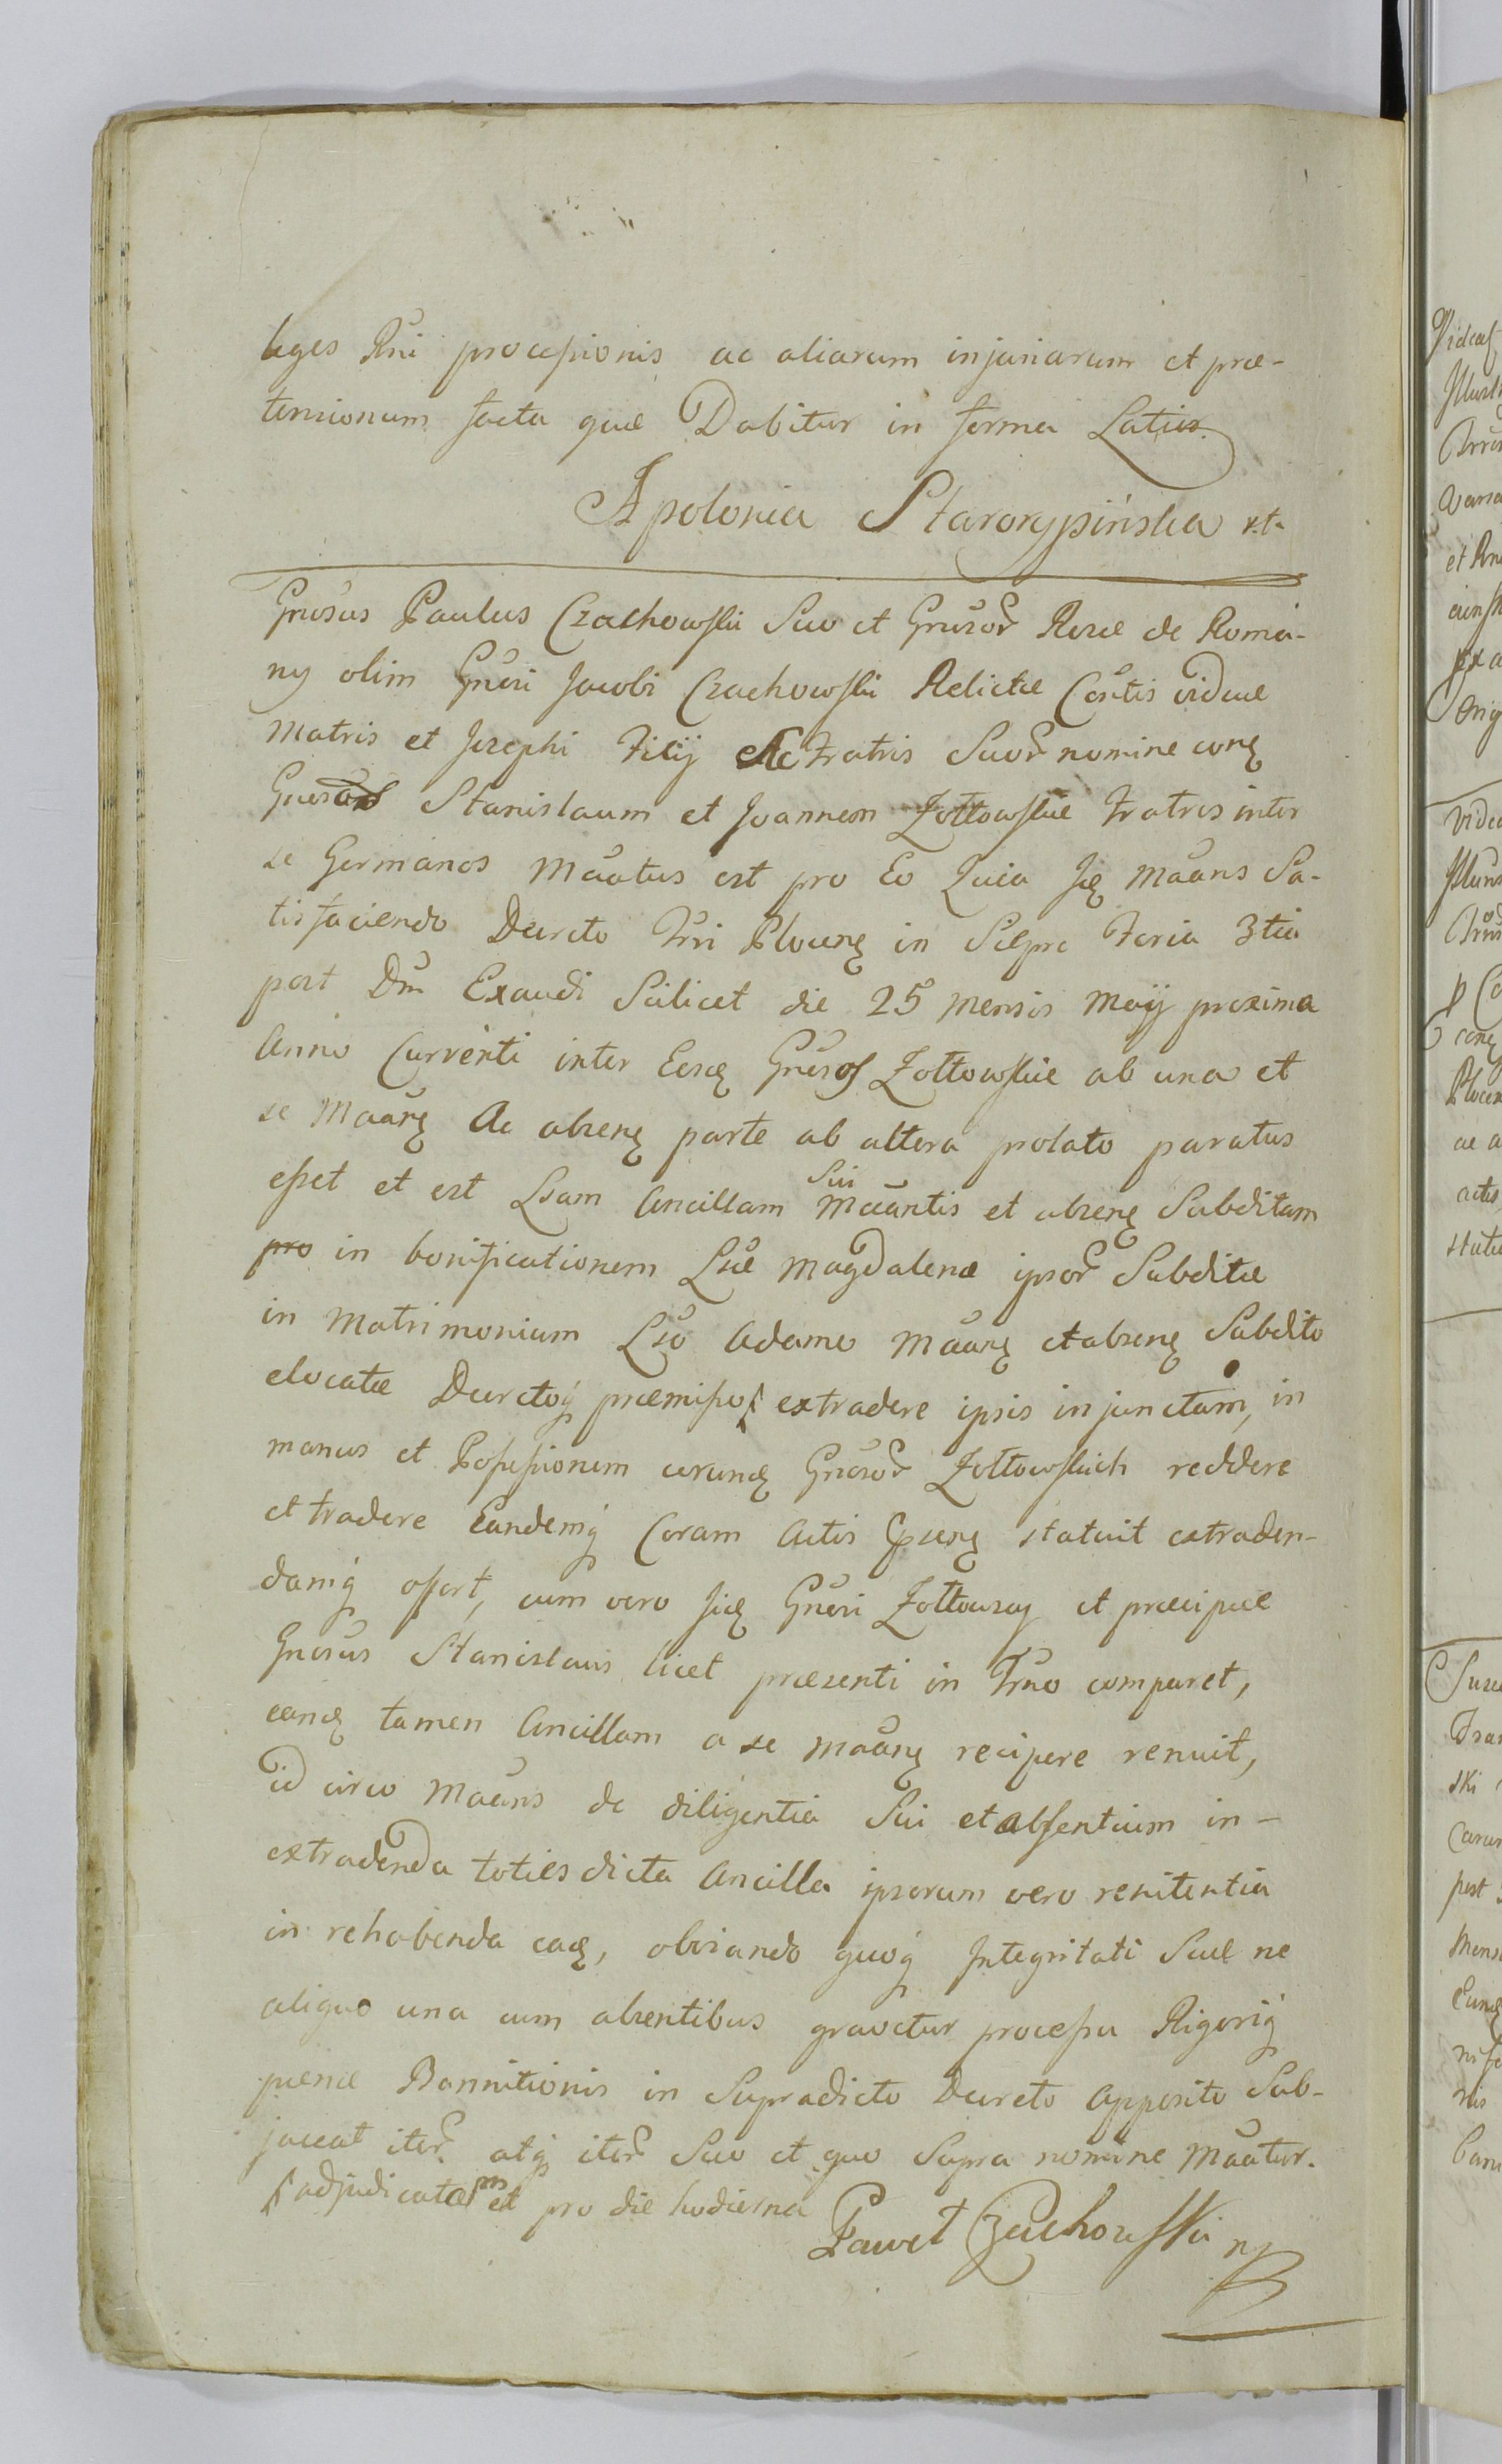 leges Rni processionis ac aliarum injuriarum et præ-
tensionum facta quæ Dabitur in forma Latior.
Apolonia Starorypińska
Gnosus Paulus Czachowski Suo et Gnosor Rosæ de Roma-
ny olim Gnosi Jacobi Czachowski Relictæ Cosortis viduæ
Matris et Josephi Filij ac Fratris Suor nomine conq
Gnosos Stanislaum et Joannem Zołtowskie Fratres inter
se Germanos Maãtus est pro Eo Quia Jq Maãns Sa-
tisfaciendo Decreto Trri Plocenq in Sierpc Feria 3tia
post Dm Exaudi Scilicet die 25 Mensis Maij proxima
Anno Currenti inter Eosq Gnosos Zołtowskie ab una et
se Maãnq Ac absenq parte ab altera prolato paratus
esset et est Lsam Ancillam Sui Maãntis et absenq Subditam
pro in bonificationem Lsæ Magdalenæ ipsor Subditæ
in Matrimonium Lso Adamo Maãnq et absenq Subdito
elocatæ Decretoq præmisso extradere ipsis injunctam, in
manus et Possessionem eorunq Gnosor Zołtowskich reddere
et tradere Eandemq Coram Actis Psenq statuit extraden-
damq offert, cum vero Jiq Gnosi Zołtowscy et præcipue
Gnosus Stanislaus licet præsenti in Trno comparet,
eanq tamen Ancillam a se Maãnq recipere renuit,
id circo Maãns de diligentia Sui et absentium in-
extradenda toties dicta Ancilla ipsorum vero renitentia
in rehabenda eaq, obviando quoq Integritati Suæ ne
aliquo una cum absentibus gravetur processu Rigoriq
pænæ Bannitionis in Supradicto Decreto Apposito Sub-
jaceat iter atq iter Suo et quo Supra nomine Maãtur.
adjudicatam et pro die hodierna
Paweł Czachowski